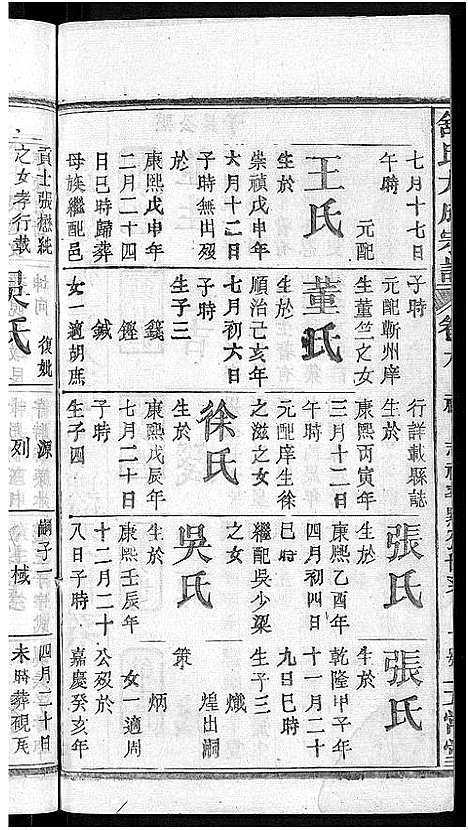 七月十七日
午時
元配
王氏
生於
崇禎戊申年
六月十二日
子時無出歿
於
康熙戊申年
二月二十四
日巳時歸葬
母族繼配邑
貢士張懋純
之女孝行載
子時
元配蘄州庠
生董竺之女
董氏
生於
順治己亥年
七月初六日
子時
生子三
籛
鏗
鍼
女一適胡庶
吳氏
復妣
行詳載縣誌
生於
康熙丙寅年
三月十二日
午時
元配庠生徐
之滋之女
徐氏
生於
康熙戊辰年
七月二十日
子時
生子四
源
列
張氏
生於
康熙乙酉年
四月初四日
巳時
繼配吳少梁
之女
吳氏
生於
康熙壬辰年
十二月二十
八日子時
嗣子
棫
張氏
生於
乾隆甲子年
十一月二十
九日巳時
生子三
熾
煌出嗣
策
炳
女一適周
公歿於
嘉慶癸亥年
四月二十日
未時葬視